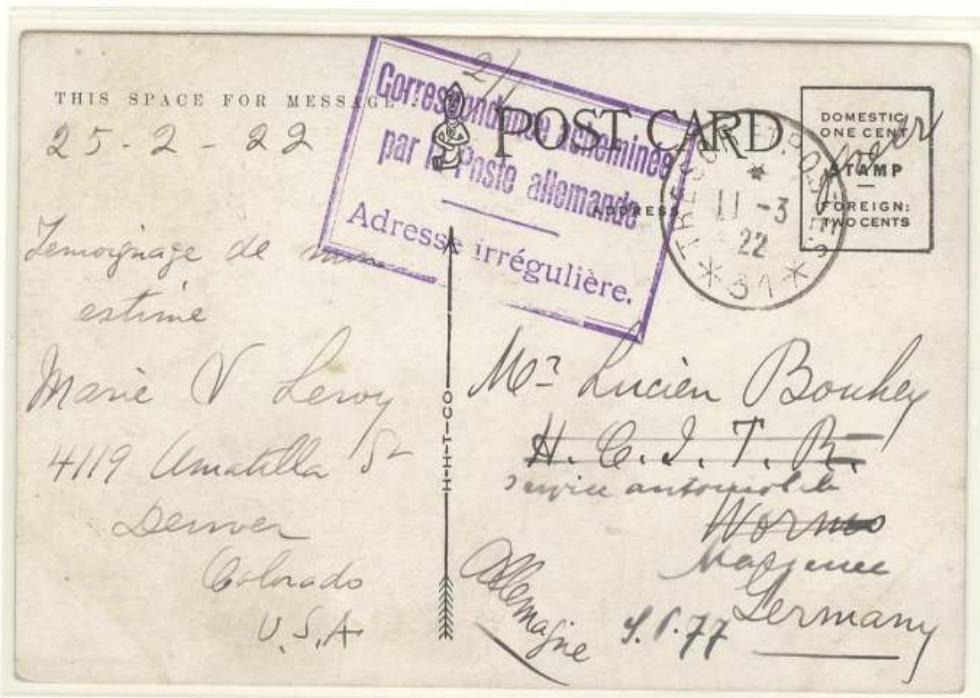 THIS SPACE FOR MESSAGE
25-2-22
Temoignage de mon
estime
Marie V Leroy
4119 Umatilla St
Denver
Colorado
U.S.A
Correspondance acheminée
par la Poste allemande
Adresse irrégulière.
2/1
POST CARD
ADDRESS
DOMESTIC:
ONE CENT
STAMP
FOREIGN:
TWO CENTS
TRESOR ET POSTES
11-3
22
* 31 *
H-H-T-CO
Mr Lucien Bouhey
H. C. I. T. R.
Service automobile
Worms
Mayence
Germany
Allemagne
S.P.77